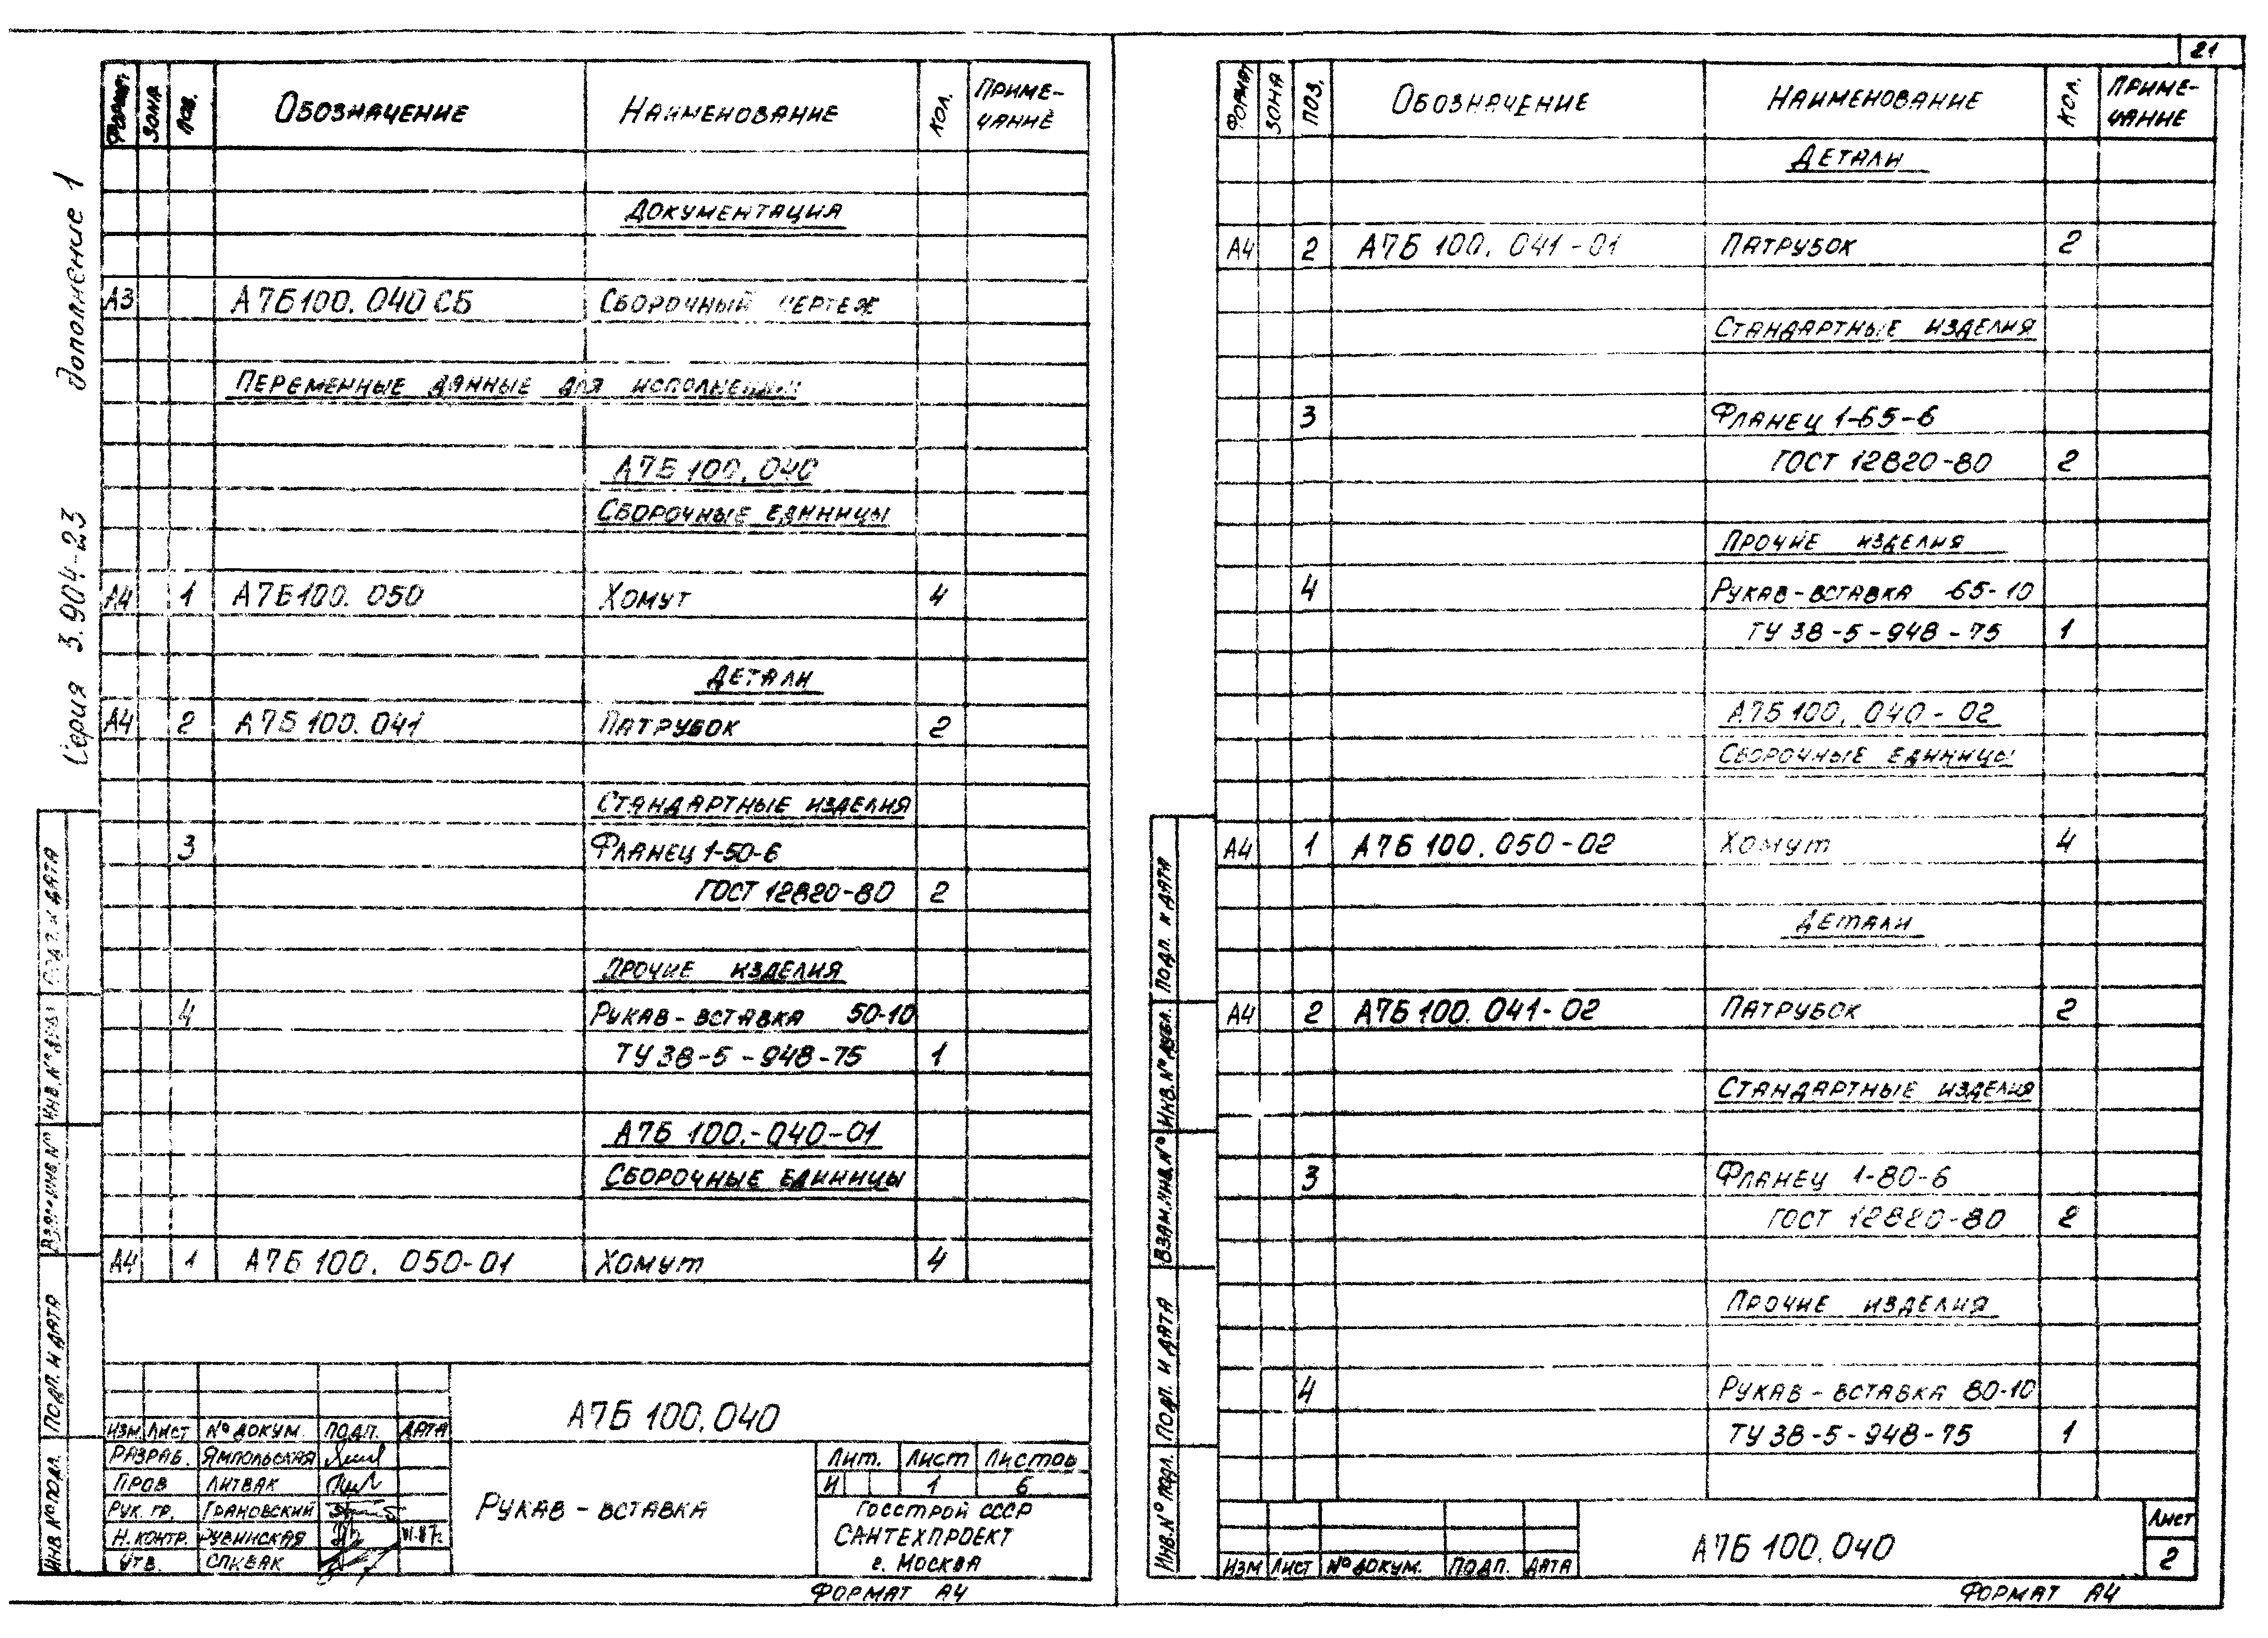 21
Серия 3.904-23 дополнение 1
ФОРМАТ ЗОНА ПОЗ. ОБОЗНАЧЕНИЕ НАИМЕНОВАНИЕ КОЛ. ПРИМЕ-
ЧАНИЕ
ДОКУМЕНТАЦИЯ
А3 А7Б100.040 СБ СБОРОЧНЫЙ ЧЕРТЕЖ
ПЕРЕМЕННЫЕ ДАННЫЕ ДЛЯ ИСПОЛНЕНИЙ
А7Б 100.040
СБОРОЧНЫЕ ЕДИНИЦЫ
А4 1 А7Б100.050 ХОМУТ 4
ДЕТАЛИ
А4 2 А7Б 100.041 ПАТРУБОК 2
СТАНДАРТНЫЕ ИЗДЕЛИЯ
3 ФЛАНЕЦ 1-50-6
ГОСТ 12820-80 2
ПРОЧИЕ ИЗДЕЛИЯ
4 РУКАВ-ВСТАВКА 50-10
ТУ 38-5-948-75 1
А7Б 100.-040-01
СБОРОЧНЫЕ ЕДИНИЦЫ
А4 1 А7Б 100. 050-01 ХОМУТ 4
ИНВ.№ ПОДЛ. ПОДП. И ДАТА ВЗАМ.ИНВ.№ ИНВ.№ ДУБЛ. ПОДП. И ДАТА
ИЗМ ЛИСТ № ДОКУМ. ПОДП. ДАТА
РАЗРАБ. ЯМПОЛЬСКАЯ
ПРОВ ЛИТВАК
РУК. ГР. ГРАНОВСКИЙ
Н. КОНТР. РУБИНСКАЯ VI.87г.
УТВ. СПИВАК
А7Б 100.040
РУКАВ-ВСТАВКА
Лит. Лист Листов
И 1 6
ГОССТРОЙ СССР
САНТЕХПРОЕКТ
г. МОСКВА
ФОРМАТ А4
ФОРМАТ ЗОНА ПОЗ. ОБОЗНАЧЕНИЕ НАИМЕНОВАНИЕ КОЛ. ПРИМЕ-
ЧАНИЕ
ДЕТАЛИ
А4 2 А7Б 100. 041-01 ПАТРУБОК 2
СТАНДАРТНЫЕ ИЗДЕЛИЯ
3 ФЛАНЕЦ 1-65-6
ГОСТ 12820-80 2
ПРОЧИЕ ИЗДЕЛИЯ
4 РУКАВ-ВСТАВКА 65-10
ТУ 38-5-948-75 1
А7Б 100. 040-02
СБОРОЧНЫЕ ЕДИНИЦЫ
А4 1 А7Б 100.050-02 ХОМУТ 4
ДЕТАЛИ
А4 2 А7Б 100. 041-02 ПАТРУБОК 2
СТАНДАРТНЫЕ ИЗДЕЛИЯ
3 ФЛАНЕЦ 1-80-6
ГОСТ 12820-80 2
ПРОЧИЕ ИЗДЕЛИЯ
4 РУКАВ-ВСТАВКА 80-10
ТУ 38-5-948-75 1
ИНВ.№ ПОДЛ. ПОДП. И ДАТА ВЗАМ.ИНВ.№ ИНВ.№ ДУБЛ. ПОДП. И ДАТА
ИЗМ ЛИСТ № ДОКУМ. ПОДП. ДАТА
А7Б 100.040
Лист
2
ФОРМАТ А4